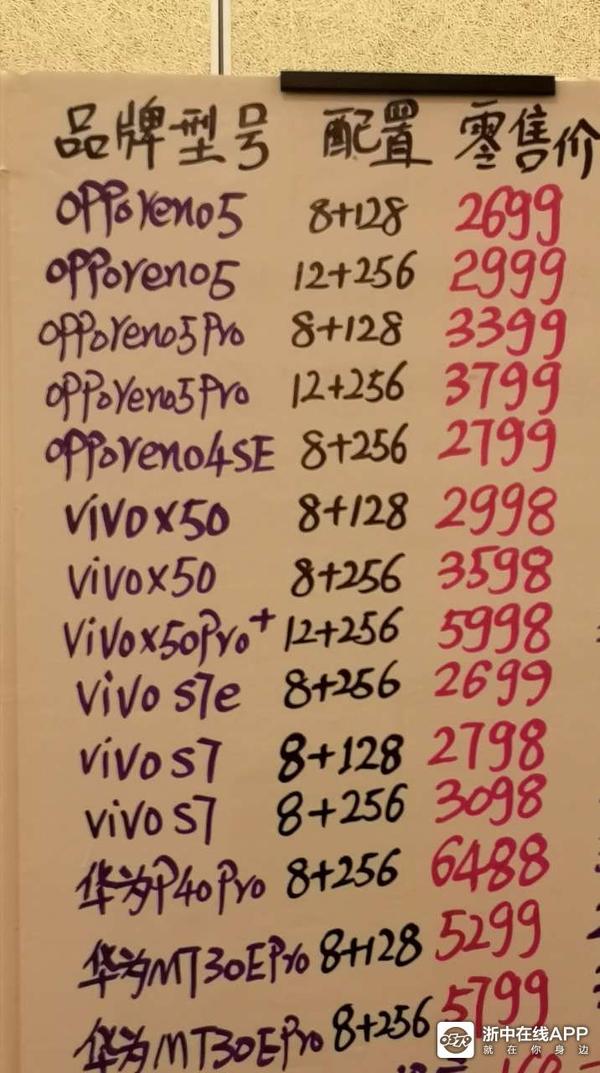 品牌型号 配置 零售价
OPPOreno5 8+128 2699
OPPOreno5 12+256 2999
OPPOreno5Pro 8+128 3399
OPPOreno5Pro 12+256 3799
OPPOreno4SE 8+256 2799
ViVOX50 8+128 2998
ViVOX50 8+256 3598
ViVOX50Pro+ 12+256 5998
ViVO S7e 8+256 2699
ViVO S7 8+128 2798
ViVO S7 8+256 3098
华为P40Pro 8+256 6488
华为MT30EPro 8+128 5299
华为MT30EPro 8+256 5799
0579 浙中在线APP
就在你身边